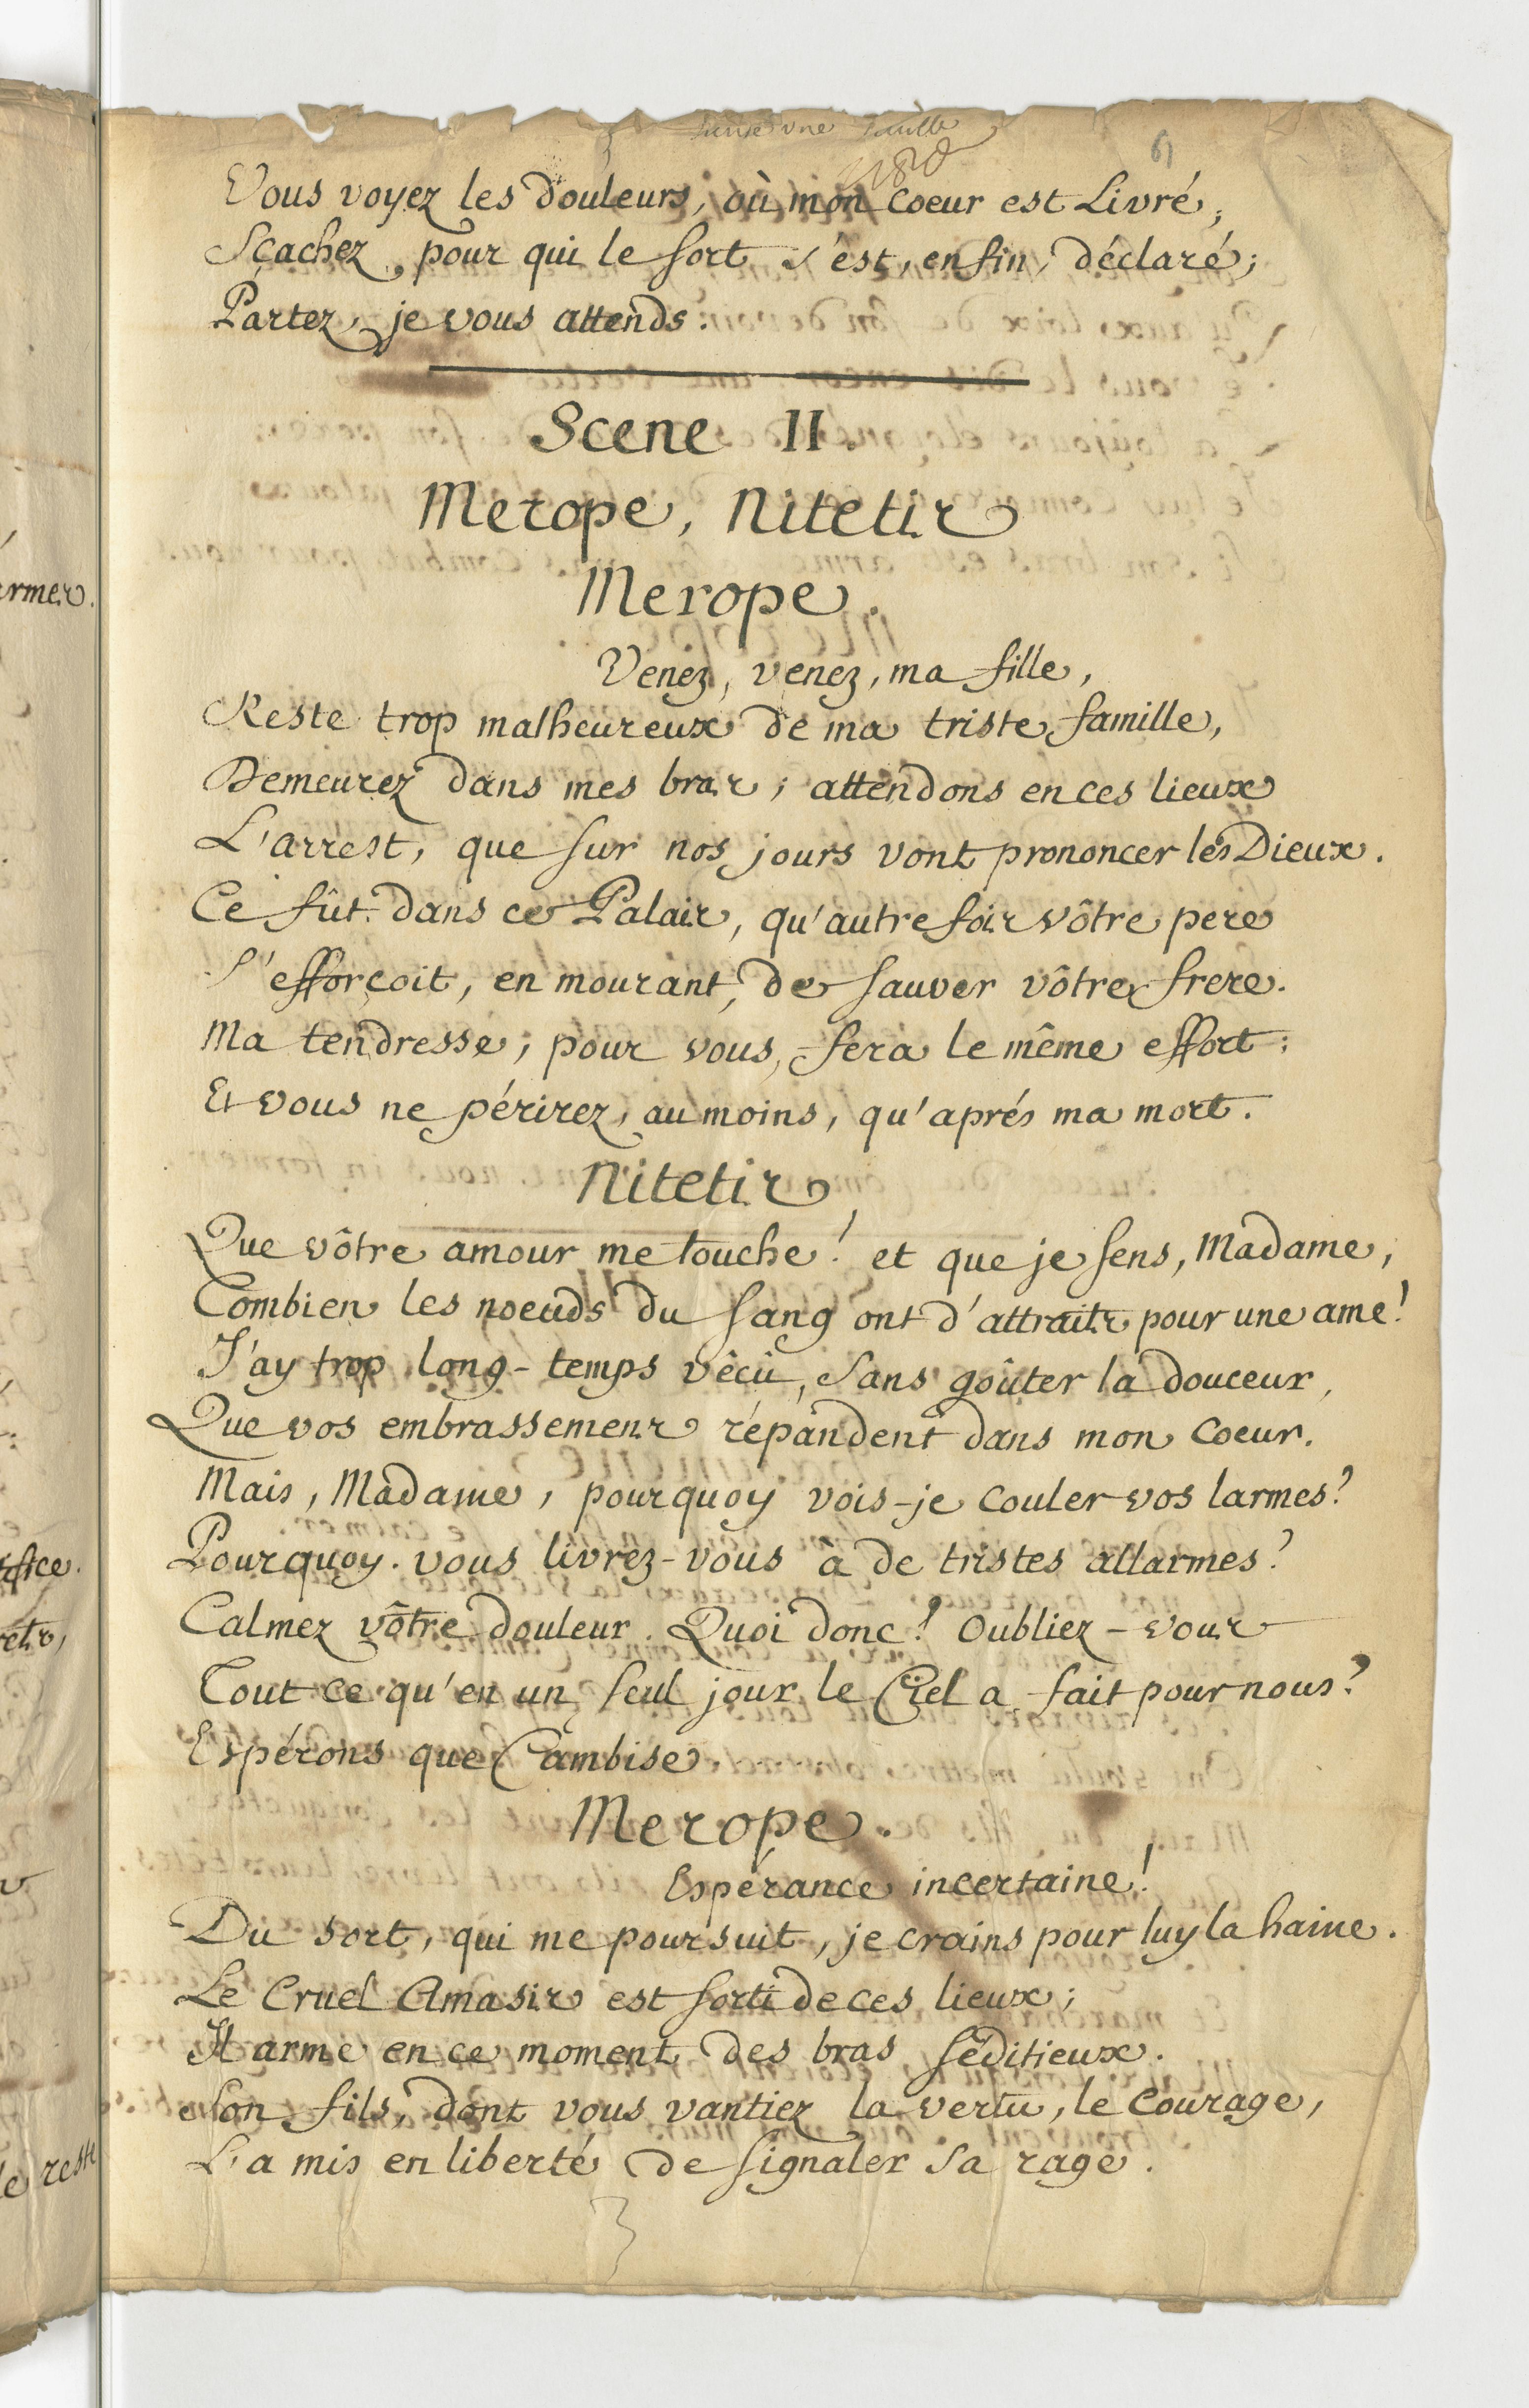 61
Vous voyez les douleurs, où mon coeur est Livré;
Sçachez, pour qui le sort s'est, enfin, déclaré;
Partez, je vous attends.
Scene II.
Merope, Nitetis
Merope.
Venez, venez, ma fille,
Reste trop malheureux de ma triste famille,
Demeurez dans mes bras; attendons en ces lieux
L'arrest, que sur nos jours vont prononcer les Dieux.
Ce fût dans ce Palais, qu'autrefois vôtre pere
S'efforçoit, en mourant, de sauver vôtre frere.
Ma tendresse, pour vous, fera le même effort:
Et vous ne périrez, au moins, qu'aprés ma mort.
Nitetis
Que vôtre amour me touche! et que je sens, Madame,
Combien les noeuds du sang ont d'attraits pour une ame!
J'ay trop long-temps vêcû, sans goûter la douceur,
Que vos embrassemens répandent dans mon coeur.
Mais, Madame, pourquoy vois-je couler vos larmes?
Pourquoy vous livrez-vous à de tristes allarmes?
Calmez vôtre douleur. Quoi donc! oubliez-vous
Tout ce qu'en un seul jour le Ciel a fait pour nous?
Espérons que Cambise
Merope.
Espérance incertaine!
Du sort, qui me poursuit, je crains pour luy la haine.
Le Cruel Amasis est sorti de ces lieux;
Il arme en ce moment des bras séditieux.
Son fils, dont vous vantiez la vertu, le courage,
L'a mis en liberté de signaler sa rage.